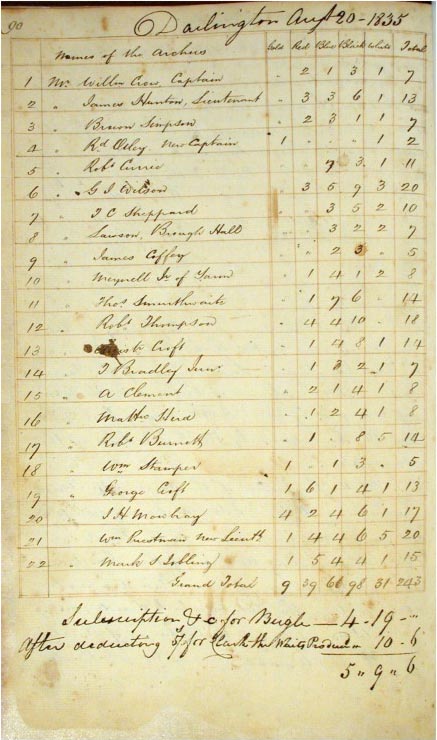 90 Darlington Augt 20 - 1835
Names of the Archers Gold Red Blue Black White Total
1 Mr. Willm Crow, Captain " 2 1 3 1 7
2 " James Hunton, Lieutenant " 3 3 6 1 13
3 " Brown Simpson " 2 3 1 1 7
4 " Rd Otley, New Captain 1 " " " 1 2
5 " Robt Currie " " 7 3 1 11
6 " G I Wilson " 3 5 9 3 20
7 " T C Sheppard " " 3 5 2 10
8 " Lawson, Brough Hall " " 3 2 2 7
9 " James Coffey " " 2 3 " 5
10 " Meynell Jr. of Yarm " 1 4 1 2 8
11 " Thos. Smurthwaite " 1 7 6 " 14
12 " Robt Thompson " 4 4 10 " 18
13 " Croft " 1 4 8 1 14
14 " T Bradley Junr " 1 3 2 1 7
15 " A Clement " 2 1 4 1 8
16 " Matthw Herd " 1 2 4 1 8
17 " Robt Burnett " 1 " 8 5 14
18 " Wm Stamper 1 " 1 3 " 5
19 " George Croft 1 6 1 4 1 13
20 " I H 4 2 4 6 1 17
21 " Wm Prestman New Lieutt. 1 4 4 6 5 20
22 " Mark S Jobling 1 5 4 4 1 15
Grand Total 9 39 66 98 31 243
Subscription &c for Bugle — 4 - 19 - "
After deducting 5/ for Clark the Waits " 10 - 6
5 " 9 " 6